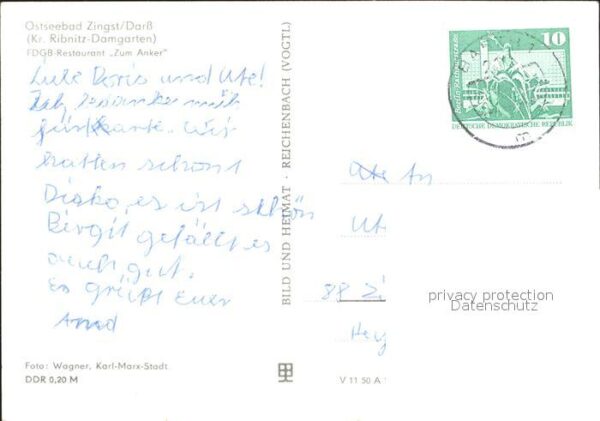 Ostseebad Zingst/Darß
(Kr. Ribnitz-Damgarten)
FDGB-Restaurant „Zum Anker"
Doris und Ute!
für
Karte. Wir
hatten schont
Disko, es ist schön
Birgit gefällt es
auch gut.
Es grüßt Euer
BILD UND HEIMAT · REICHENBACH (VOGTL)
10
DEUTSCHE DEMOKRATISCHE REPUBLIK
An
Ut
88 Zi
privacy protection
Datenschutz
Foto: Wagner, Karl-Marx-Stadt
DDR 0,20 M
V 11 50 A